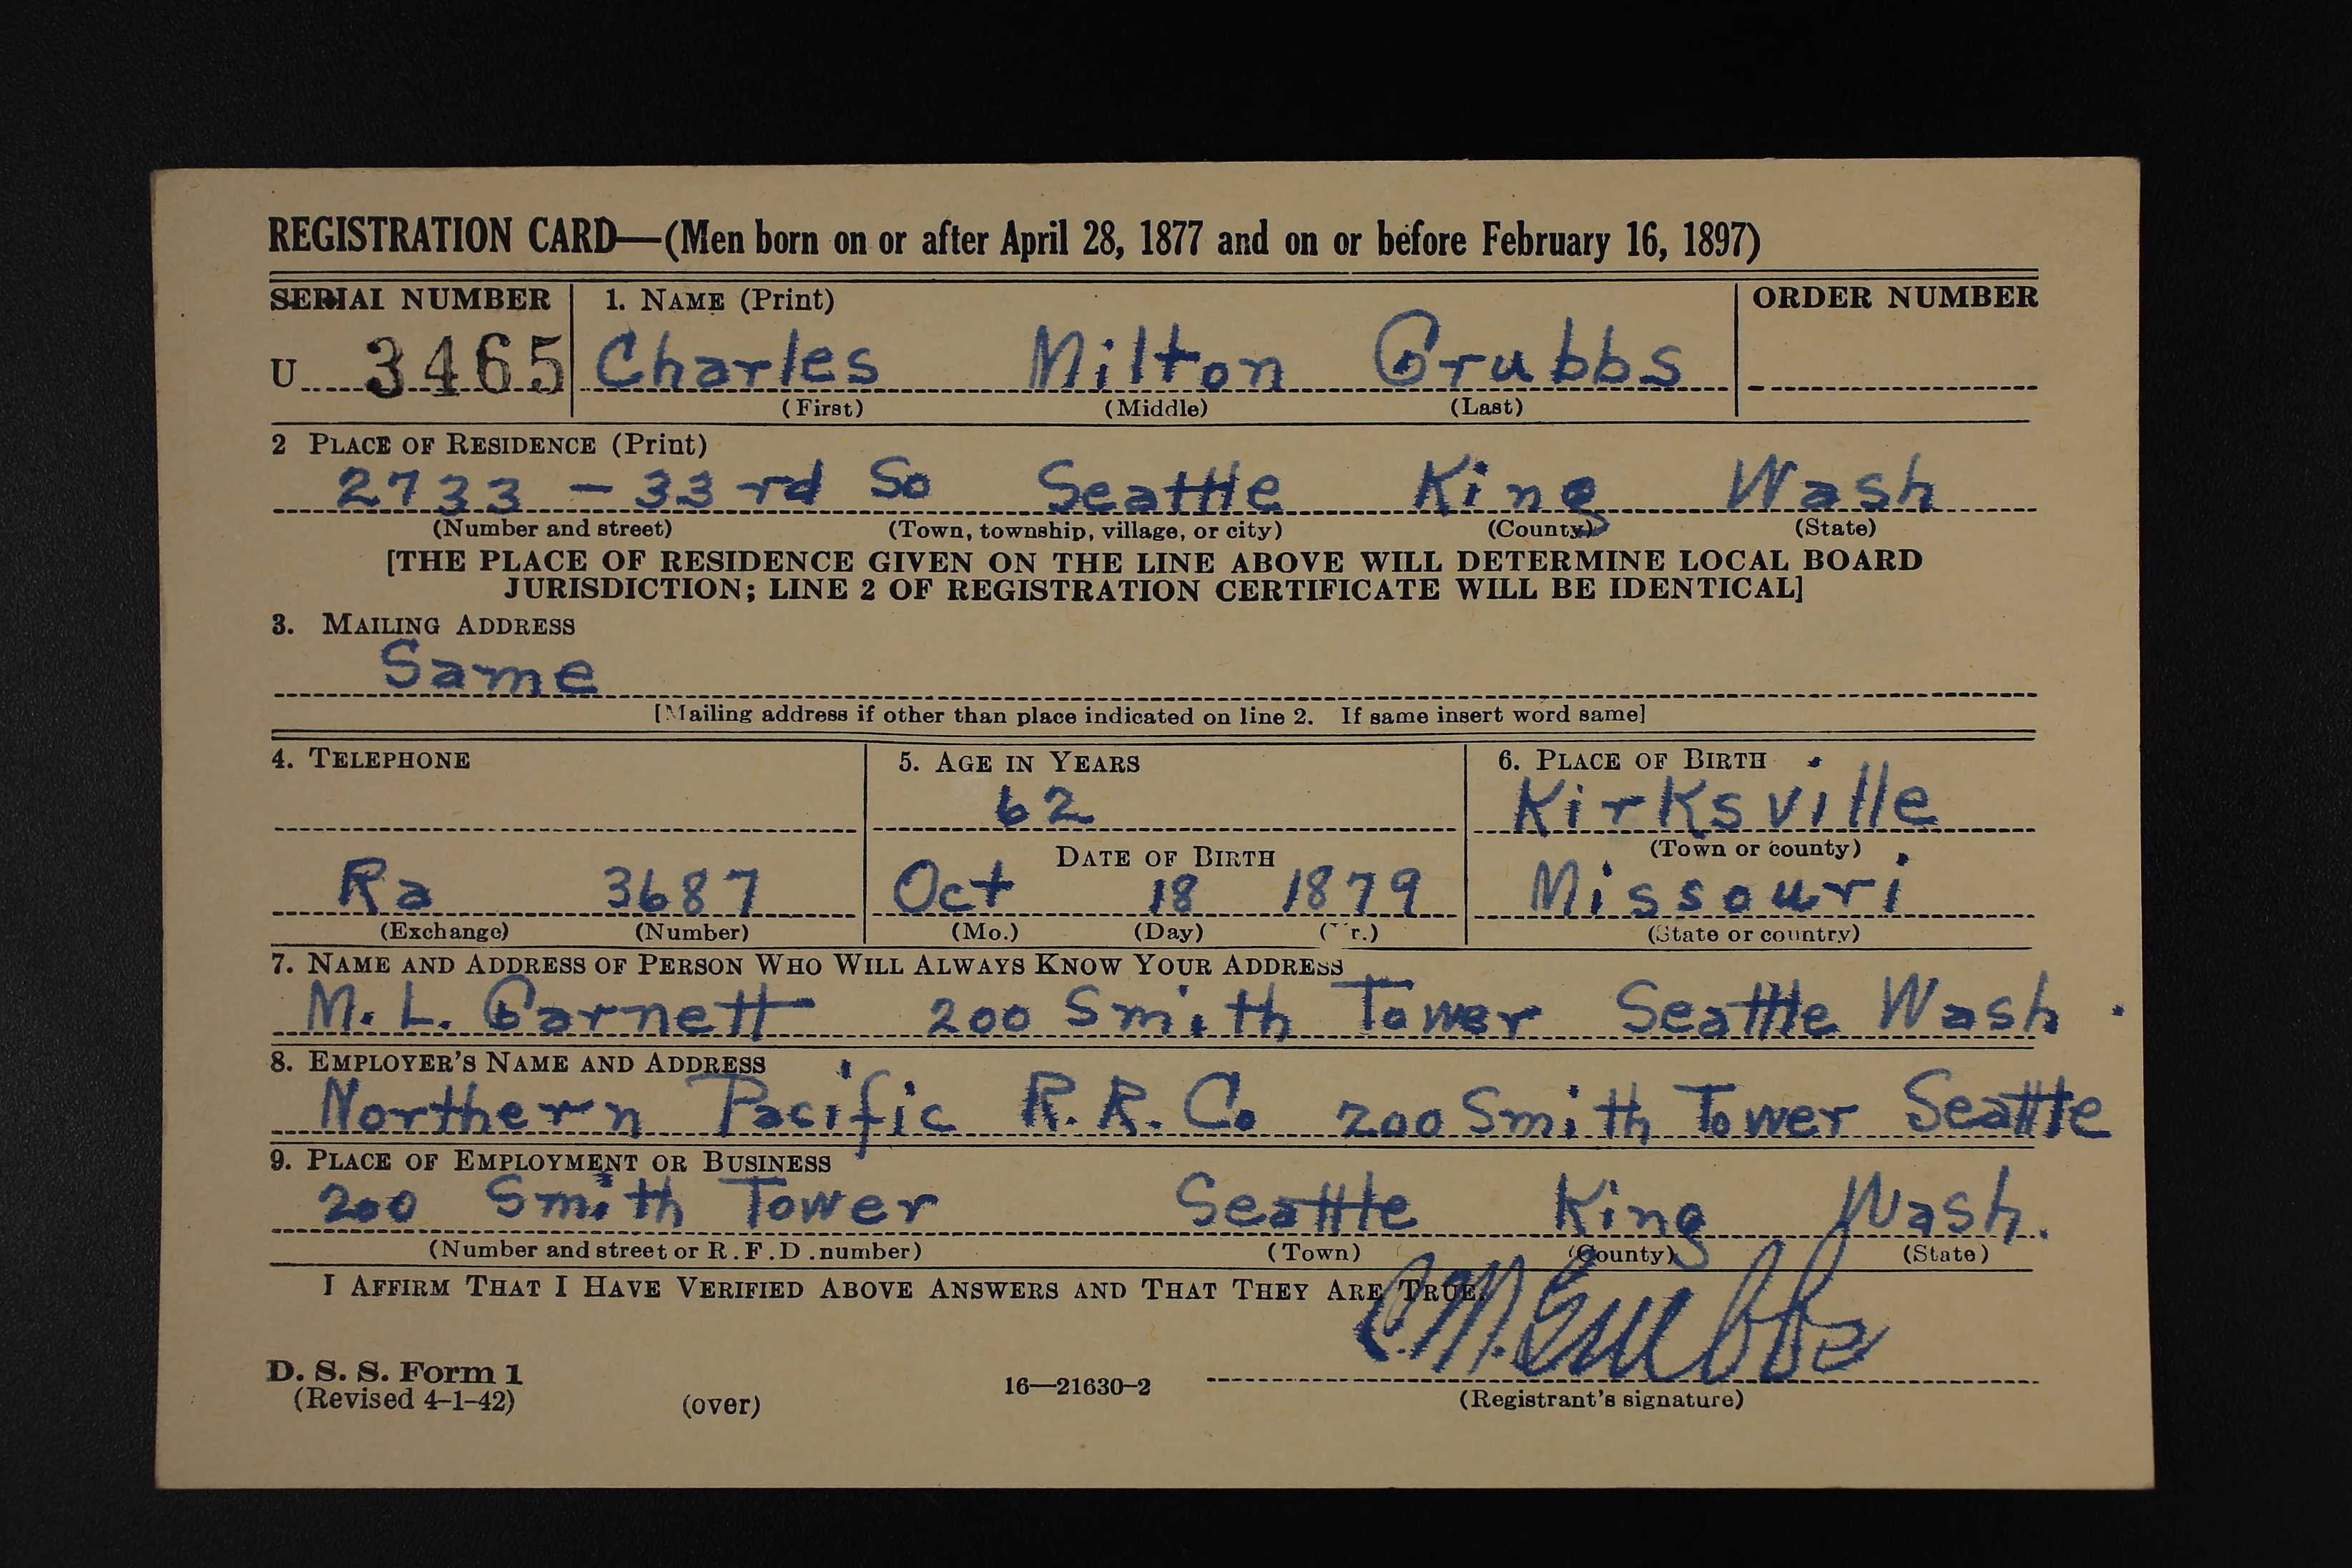 REGISTRATION CARD—(Men born on or after April 28, 1877 and on or before February 16, 1897)
SERIAL NUMBER 1. NAME (Print) ORDER NUMBER
U 3465 Charles Milton Grubbs
(First) (Middle) (Last)
2 PLACE OF RESIDENCE (Print)
2733 - 33rd So Seattle King Wash
(Number and street) (Town, township, village, or city) (County) (State)
[THE PLACE OF RESIDENCE GIVEN ON THE LINE ABOVE WILL DETERMINE LOCAL BOARD
JURISDICTION; LINE 2 OF REGISTRATION CERTIFICATE WILL BE IDENTICAL]
3. MAILING ADDRESS
Same
[Mailing address if other than place indicated on line 2. If same insert word same]
4. TELEPHONE 5. AGE IN YEARS 6. PLACE OF BIRTH
62 Kirksville
DATE OF BIRTH (Town or county)
Ra 3687 Oct 18 1879 Missouri
(Exchange) (Number) (Mo.) (Day) (Yr.) (State or country)
7. NAME AND ADDRESS OF PERSON WHO WILL ALWAYS KNOW YOUR ADDRESS
M. L. Garnett 200 Smith Tower Seattle Wash.
8. EMPLOYER'S NAME AND ADDRESS
Northern Pacific R.R. Co 200 Smith Tower Seattle
9. PLACE OF EMPLOYMENT OR BUSINESS
200 Smith Tower Seattle King Wash.
(Number and street or R.F.D. number) (Town) (County) (State)
I AFFIRM THAT I HAVE VERIFIED ABOVE ANSWERS AND THAT THEY ARE TRUE.
C. M. Grubbs
D. S. S. Form 1
(Revised 4-1-42) (over) 16—21630-2 (Registrant's signature)